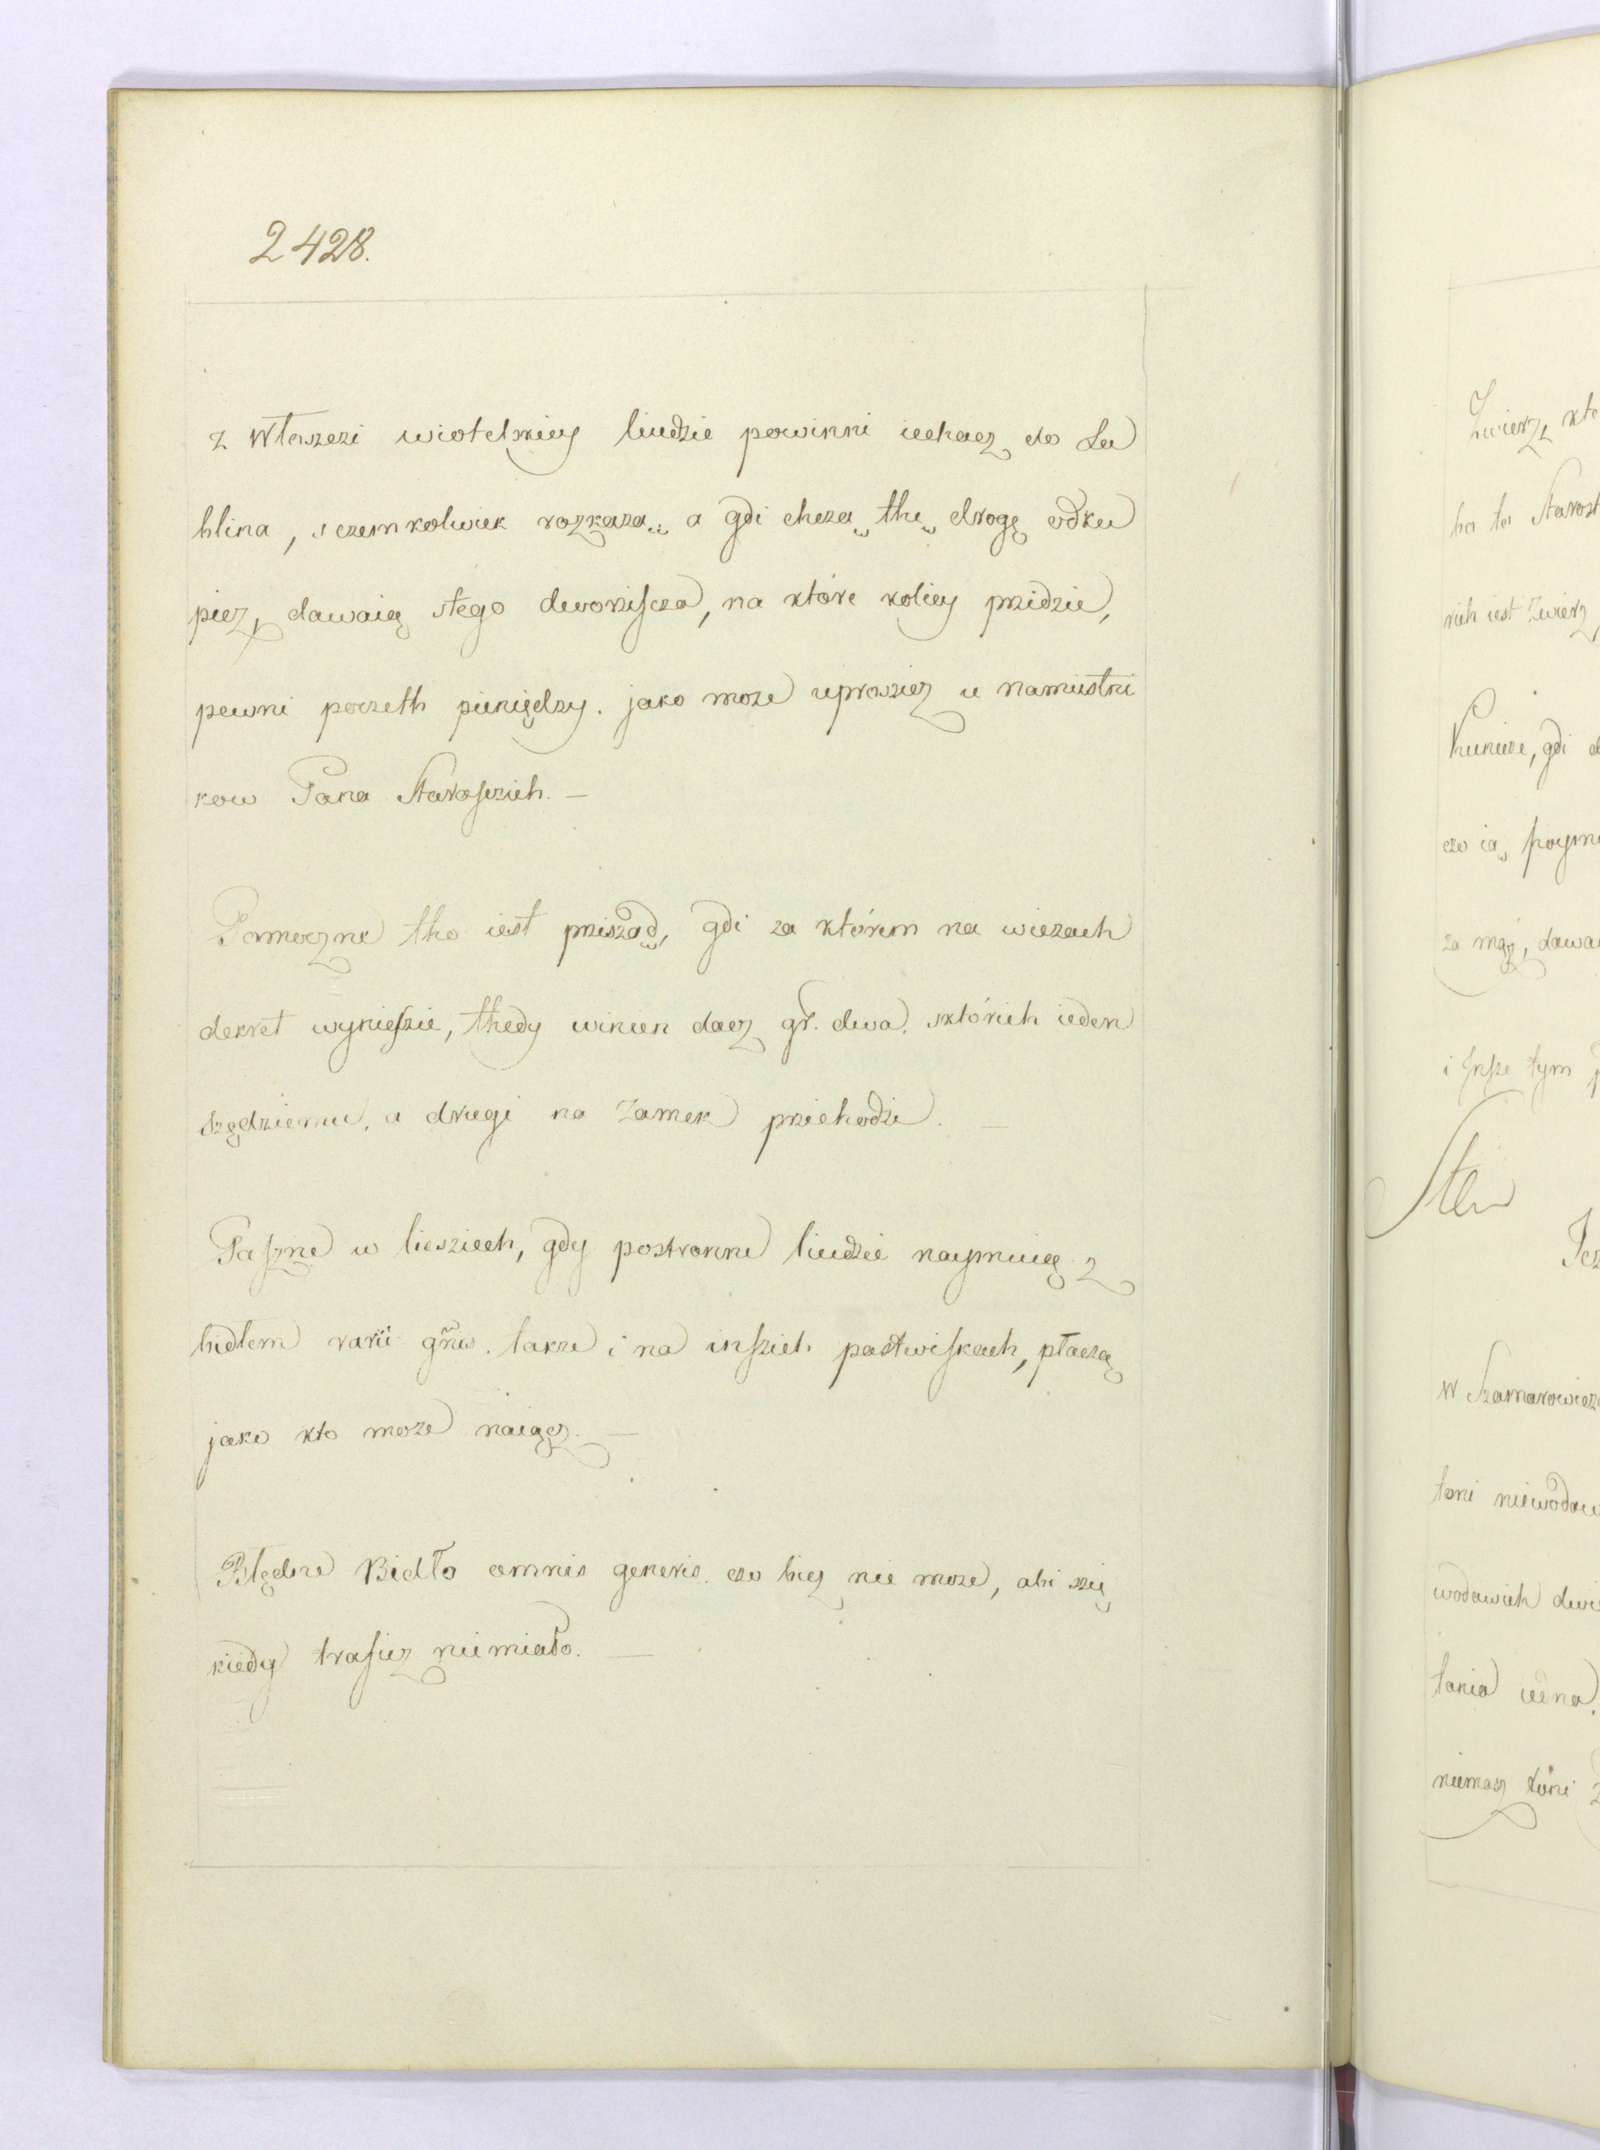 2428.
z Włoszczi wiotelskiey liudzie powinni iechacz do Lu
blina, sczemkolwiek rozkaza̧, a gdi chcza̧ thę drogę odku
picz, dawaią stego dworzisca, na które koliey przidzie,
pewni poczeth pieniędzy. jako moze uprosicz u namiestni
kow Pana Staroſczich. —
Pomoczne tho iest przisząd, gdi za którem na wieczach
dekret wynieſzie, thedy winien dacz gr. dwa. sktórich ieden
szędziemu, a drugi na Zamek przichodzi. —
Paſzne w liesziech, gdy postronni liudzie naymuią z
bidłem varii gñis. takze i na inſzich pastwiſkach, płaczą
jako kto moze naiącz. —
Błędne Bidło omnis generis. czo bicz nie moze, abi szię
kiedy traficz niemiało. —
Zwierz,
ba to Starost
rich iest Zwierz,
Kunicze, gdi
czo ia̧ poym
za mąz, dawa
i Inſze tym
Sten
W Szamarowicz
toni niewodow
wodowich dwi
tonia iedna.
niemasz